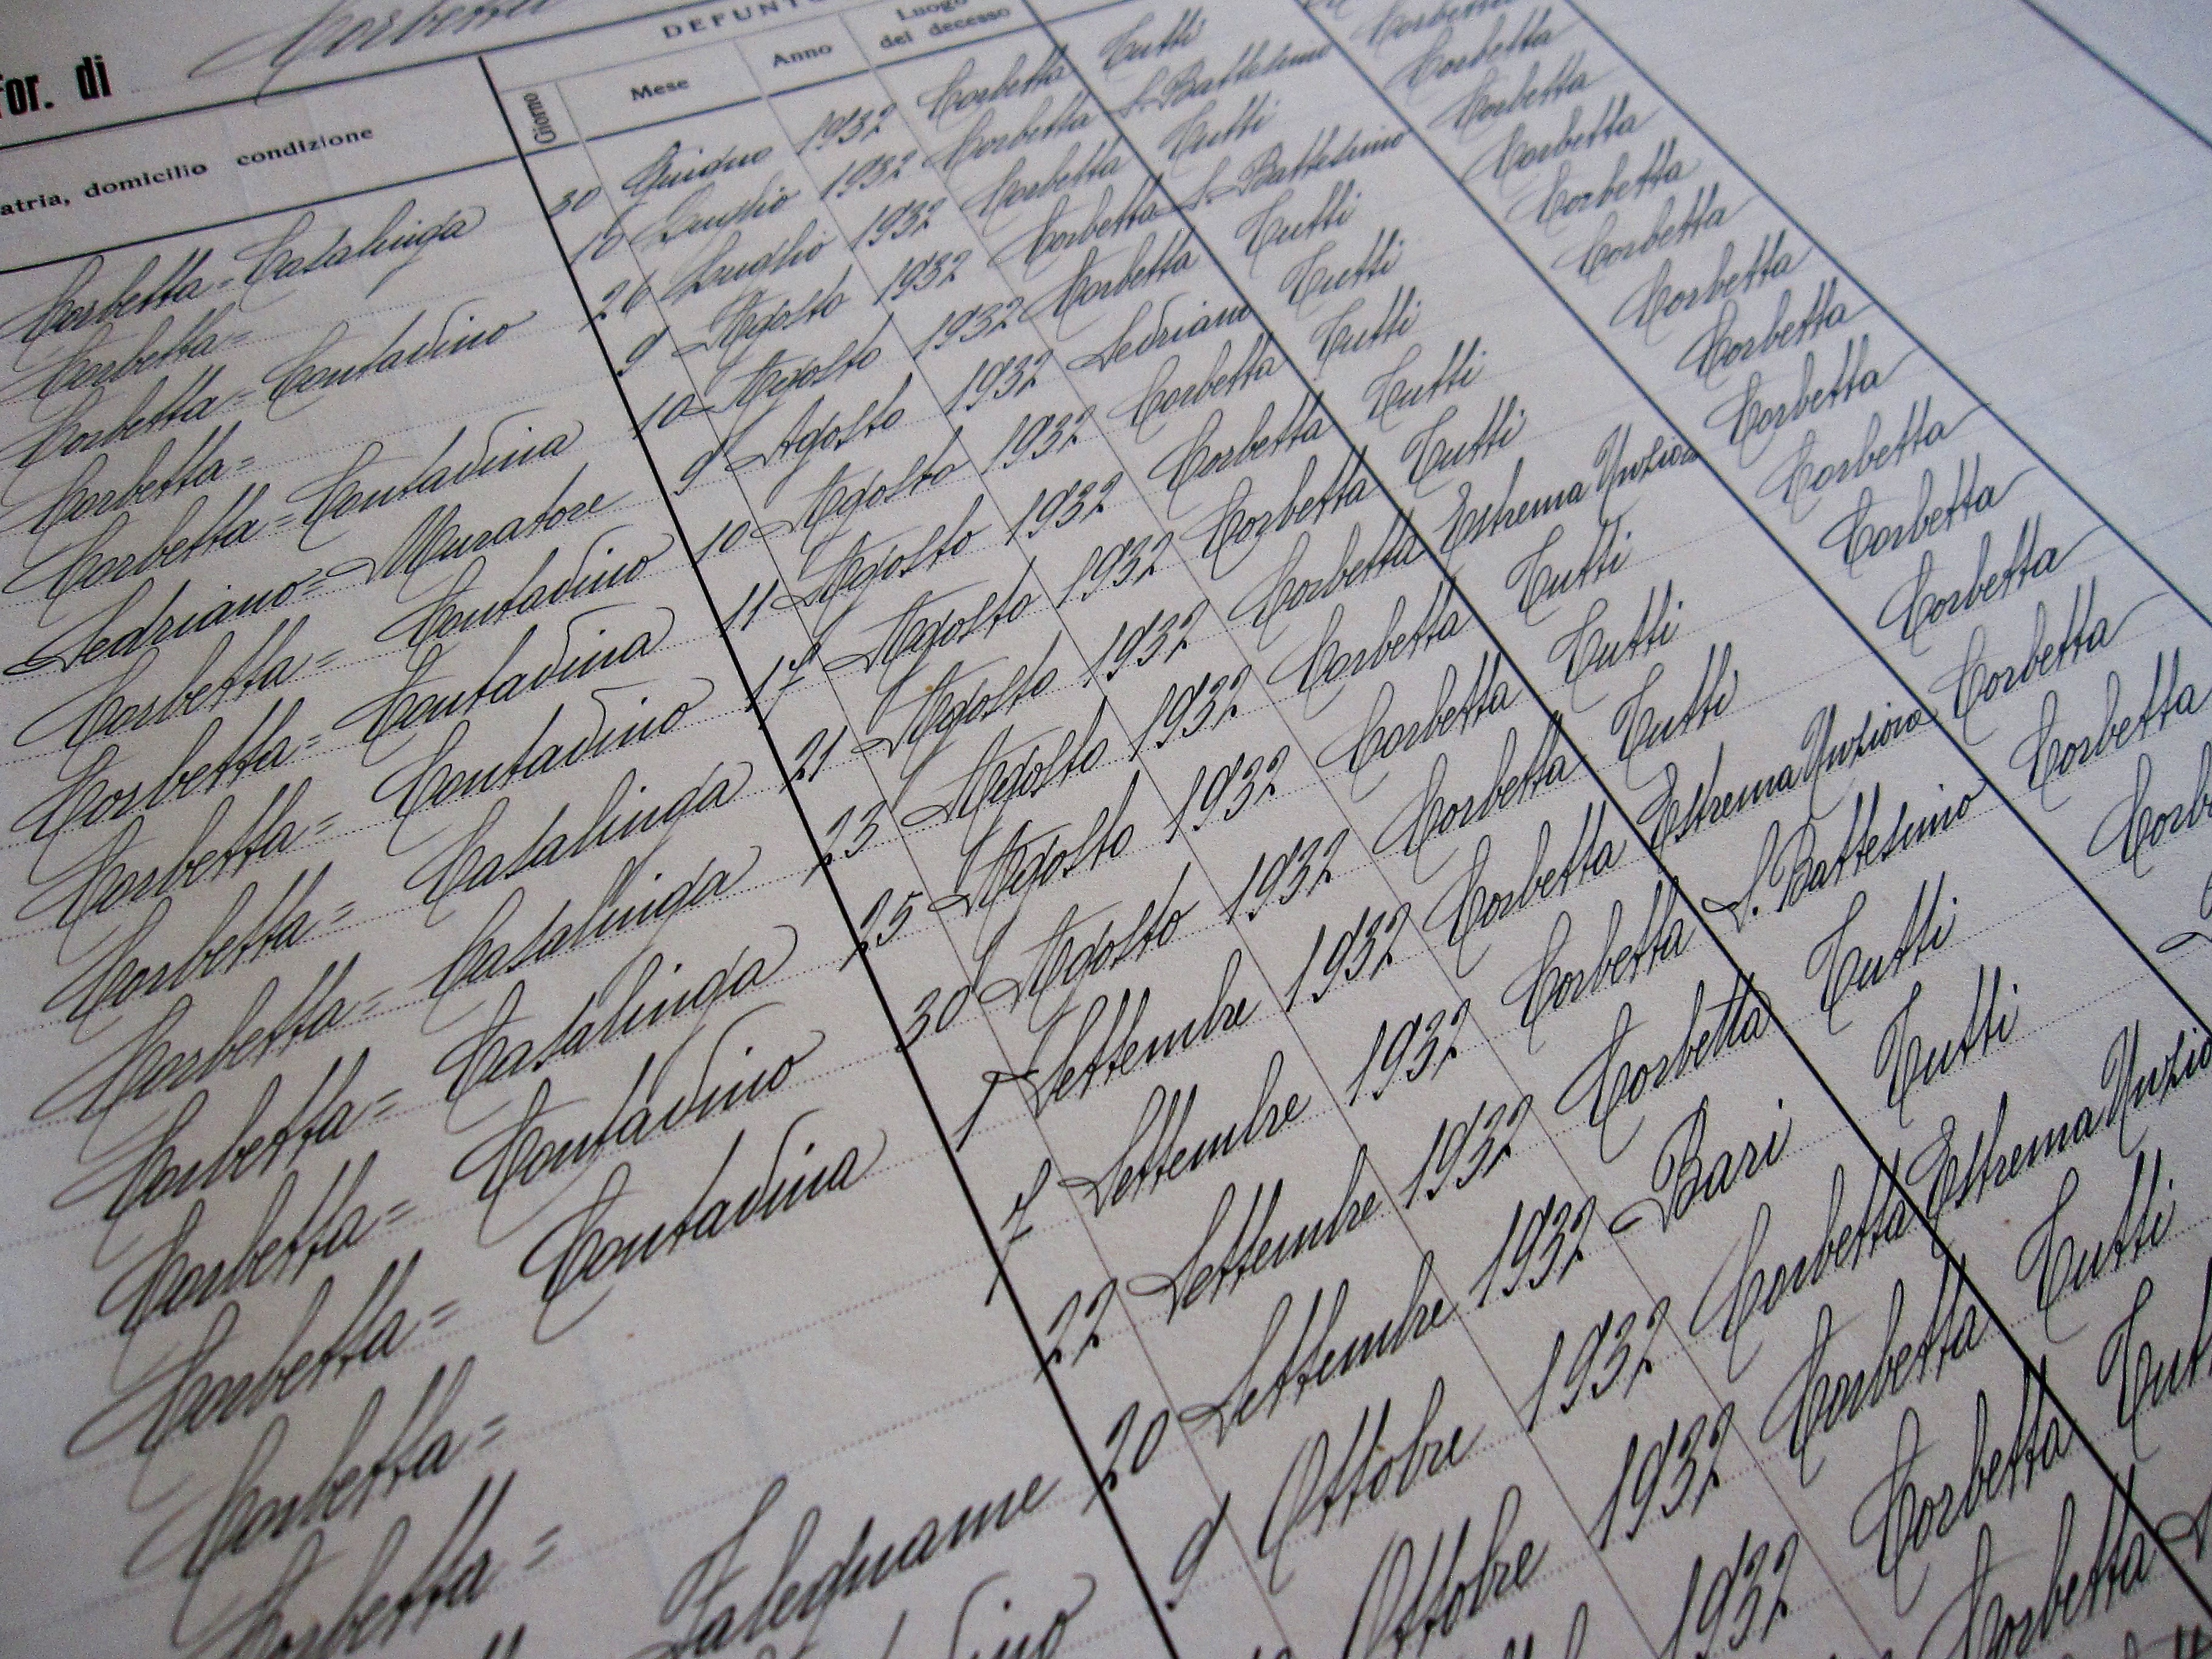 for. di Corbetta
DEFUNTO
atria, domicilio condizione Giorno Mese Anno Luogo del decesso
Corbetta = Casalinga 30 Giugno 1932 Corbetta Tutti Corbetta
Corbetta = 16 Luglio 1932 Corbetta S. Battesimo Corbetta
Corbetta = Contadino 26 Luglio 1932 Corbetta Tutti Corbetta
Corbetta = 9 Agosto 1932 Corbetta S. Battesimo Corbetta
Corbetta = Contadina 10 Agosto 1932 Corbetta Tutti Corbetta
Sedriano = Muratore 9 Agosto 1932 Sedriano Tutti Corbetta
Corbetta = Contadino 10 Agosto 1932 Corbetta Tutti Corbetta
Corbetta = Contadina 11 Agosto 1932 Corbetta Tutti Corbetta
Corbetta = Contadino 17 Agosto 1932 Corbetta Tutti Corbetta
Corbetta = Casalinga 21 Agosto 1932 Corbetta Estrema Unzione Corbetta
Corbetta = Casalinga 23 Agosto 1932 Corbetta Tutti Corbetta
Corbetta = Casalinga 25 Agosto 1932 Corbetta Tutti Corbetta
Corbetta = Contadino 30 Agosto 1932 Corbetta Tutti Corbetta
Corbetta = Contadina 1 Settembre 1932 Corbetta Estrema Unzione Corbetta
Corbetta = 7 Settembre 1932 Corbetta S. Battesimo Corbetta
Corbetta = 22 Settembre 1932 Corbetta Tutti Corb
Falegname 20 Settembre 1932 Bari Tutti
9 Ottobre 1932 Corbetta Estrema Unzio
Ottobre 1932 Corbetta Tutti
1932 Corbetta Tutt
Corbetta